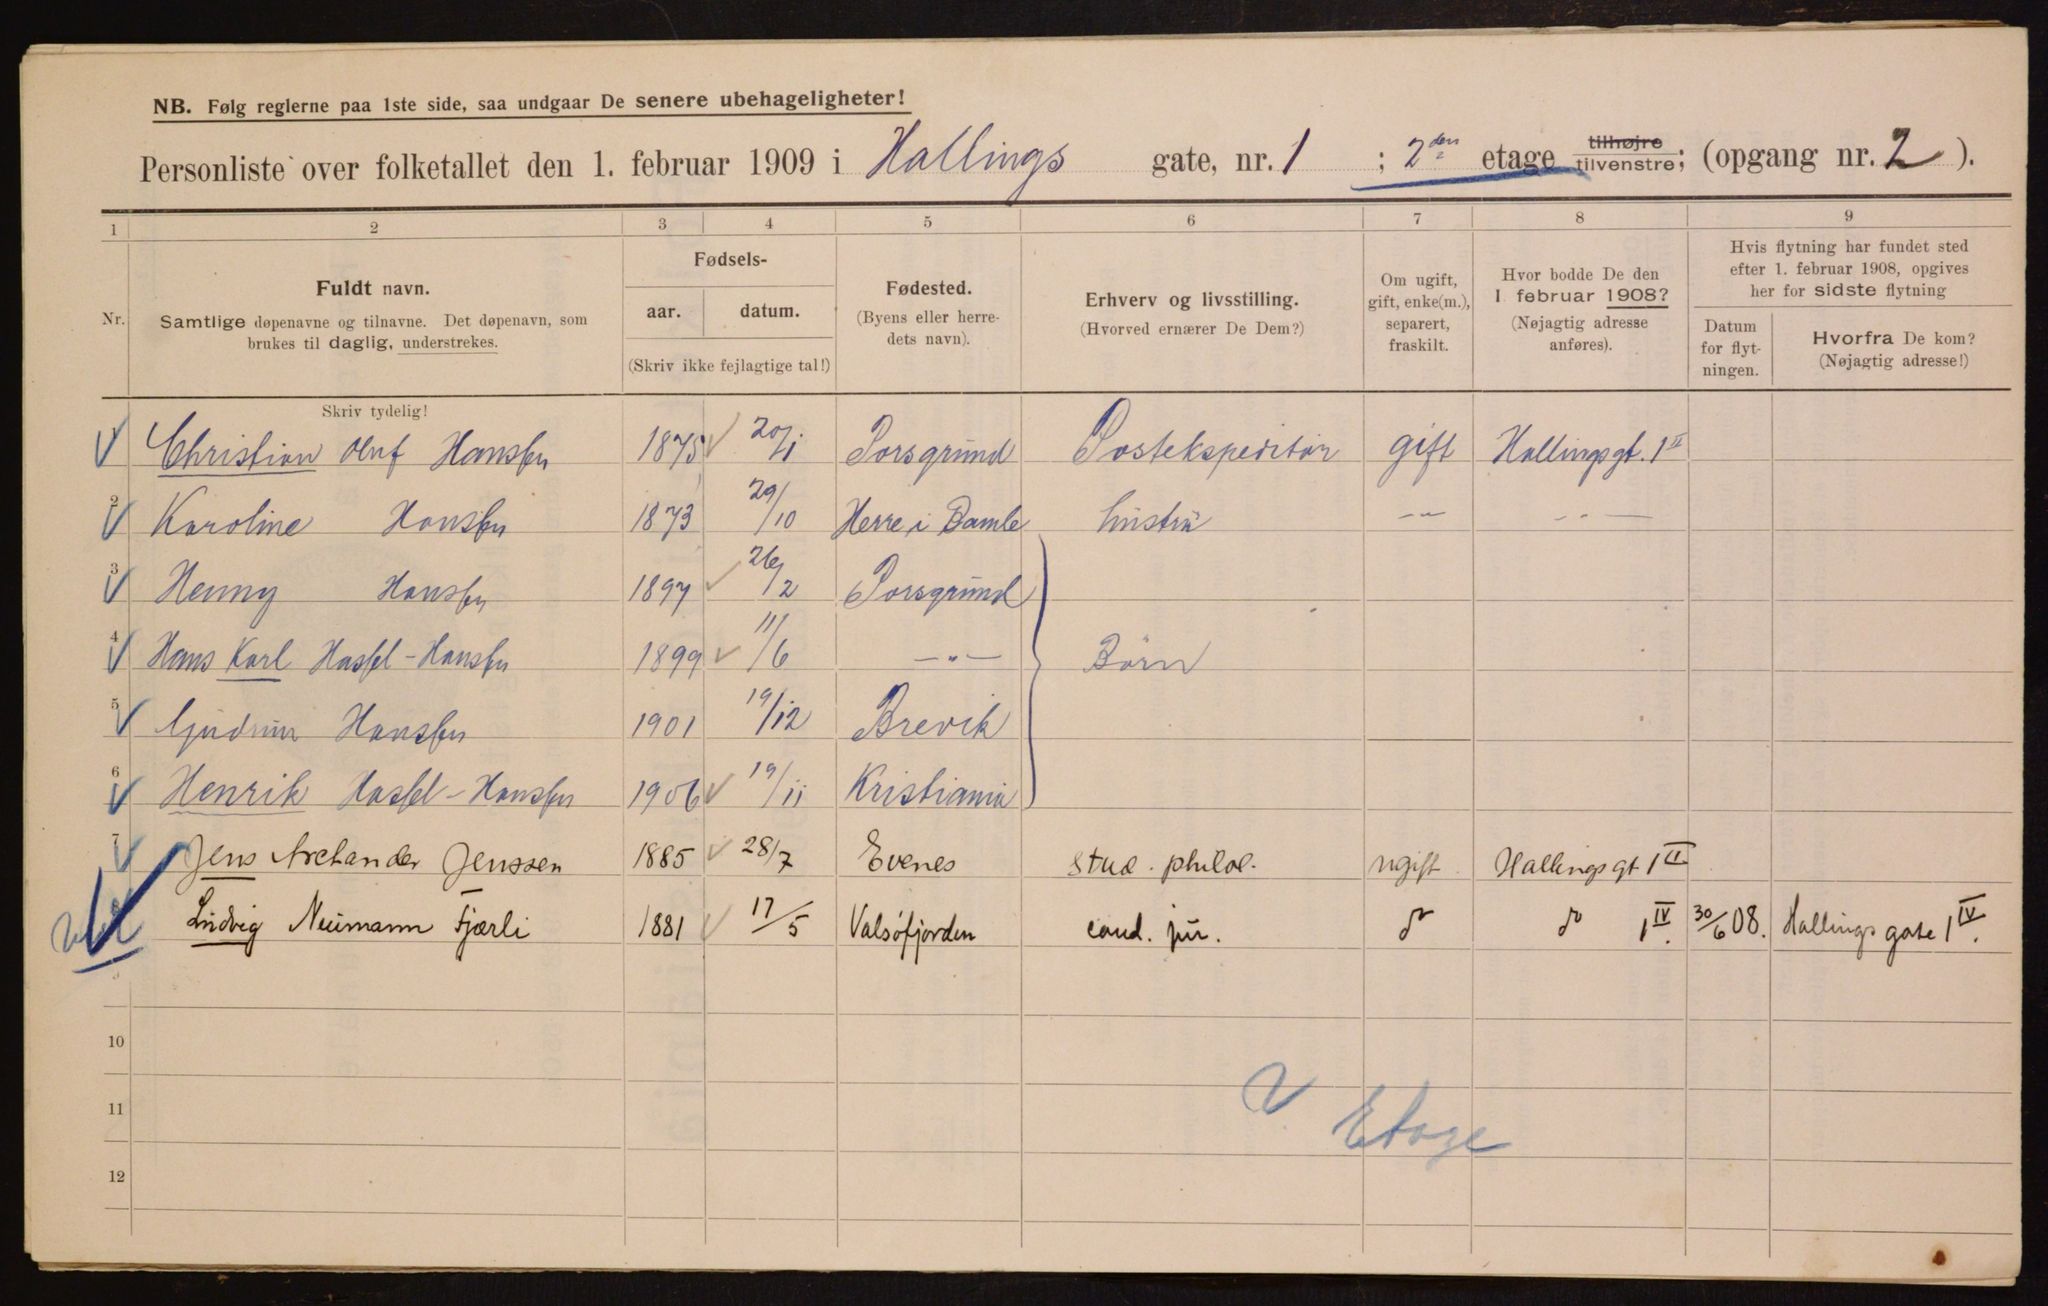 NB. Følg reglerne paa 1ste side, saa undgaar De senere ubehageligheter!
Personliste over folketallet den 1. februar 1909 i Hallings gate, nr. 1 ; 2den etage tilhøjre tilvenstre; (opgang nr. 2 ).
1 2 3 4 5 6 7 8 9
Nr.
Fuldt navn.
Samtlige døpenavne og tilnavne. Det døpenavn, som
brukes til daglig, understrekes.
Fødsels-
aar. datum.
(Skriv ikke fejlagtige tal!)
Fødested.
(Byens eller herre-
dets navn).
Erhverv og livsstilling.
(Hvorved ernærer De Dem?)
Om ugift,
gift, enke(m.),
separert,
fraskilt.
Hvor bodde De den
1 februar 1908?
(Nøjagtig adresse
anføres).
Hvis flytning har fundet sted
efter 1. februar 1908, opgives
her for sidste flytning
Datum
for flyt-
ningen.
Hvorfra De kom?
(Nøjagtig adresse!)
Skriv tydelig!
1 Christian Oluf Hansen 1875 20/1 Porsgrund Postekspeditør gift Hallingsgt. 1 II
2 Karoline Hansen 1873 29/10 Herre i Bamle hustru -"- -"-
3 Henny Hansen 1897 26/2 Porsgrund
4 Hans Karl Hassel-Hansen 1899 11/6 -"- Børn
5 Gudrun Hansen 1901 19/12 Brevik
6 Henrik Hassel-Hansen 1906 19/11 Kristiania
7 Jens Archander Jenssen 1885 28/7 Evenes stud. philol. ugift Hallingsgt 1 II
8 Ludvig Neumann Fjærli 1881 17/5 Valsöfjorden cand. jur. do do 1 IV. 30/6 08. Hallings gate 1 IV.
10
11
12
V Etage